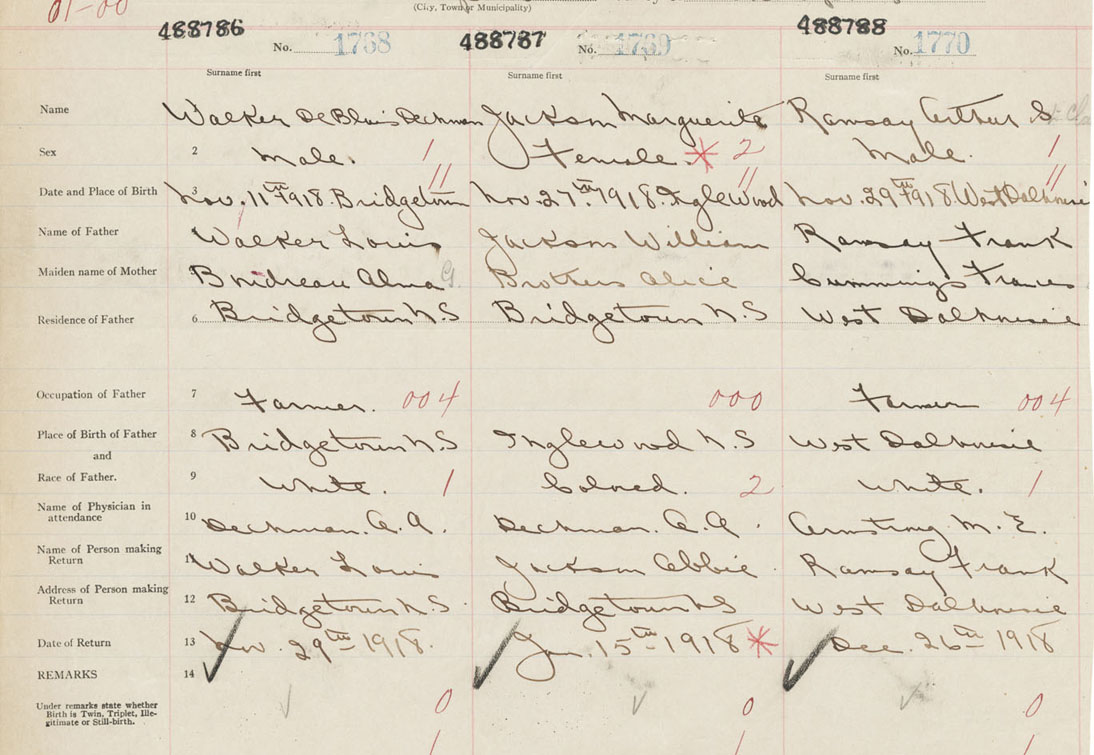 (City, Town or Municipality)
01-00
488786 488787 488788
No. 1768 No. 1769 No. 1770
Surname first Surname first Surname first
Name Walker DeBlois Dechman Jackson Marguerite Ramsay Arthur S
Sex 2 Male. 1 Female * 2 Male. 1
11 11 11
Date and Place of Birth 3 Nov. 11th 1918. Bridgetown Nov. 27th 1918. Inglewood Nov. 29th 1918 West Dalhousie
Name of Father Walker Louis Jackson William Ramsay Frank
Maiden name of Mother Alma Brothers Alice Cummings Frances
Residence of Father 6 Bridgetown N.S Bridgetown N.S West Dalhousie
Occupation of Father 7 Farmer. 004 000 Farmer 004
Place of Birth of Father 8 Bridgetown N.S Inglewood N.S West Dalhousie
and
Race of Father. 9 White. 1 Colored. 2 White. 1
Name of Physician in
attendance 10 Dechman. A.A. Dechman. A.A. Armstrong M.E.
Name of Person making
Return 11 Walker Louis Jackson Abbie Ramsay Frank
Address of Person making
Return 12 Bridgetown N.S. Bridgetown NS West Dalhousie
Date of Return 13 Nov. 29th 1918. Jan. 15th 1918 * Dec. 26th 1918
REMARKS 14
Under remarks state whether
Birth is Twin, Triplet, Ille-
gitimate or Still-birth.
0 0 0
1 1 1